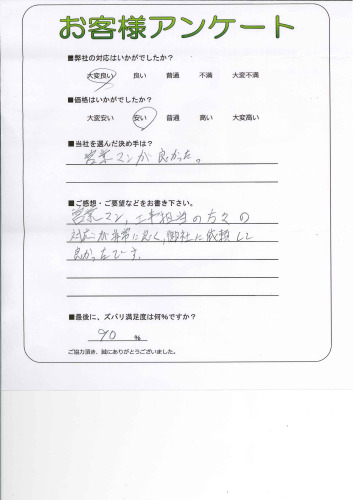 お客様アンケート
■弊社の対応はいかがでしたか？
大変良い 良い 普通 不満 大変不満
■価格はいかがでしたか？
大変安い 安い 普通 高い 大変高い
■当社を選んだ決め手は？
営業マンが良かった。
■ご感想・ご要望などをお書き下さい。
営業マン、工事担当の方々の
対応が非常に良く、御社に依頼して
良かったです。
■最後に、ズバリ満足度は何%ですか？
90 %
ご協力頂き、誠にありがとうございました。